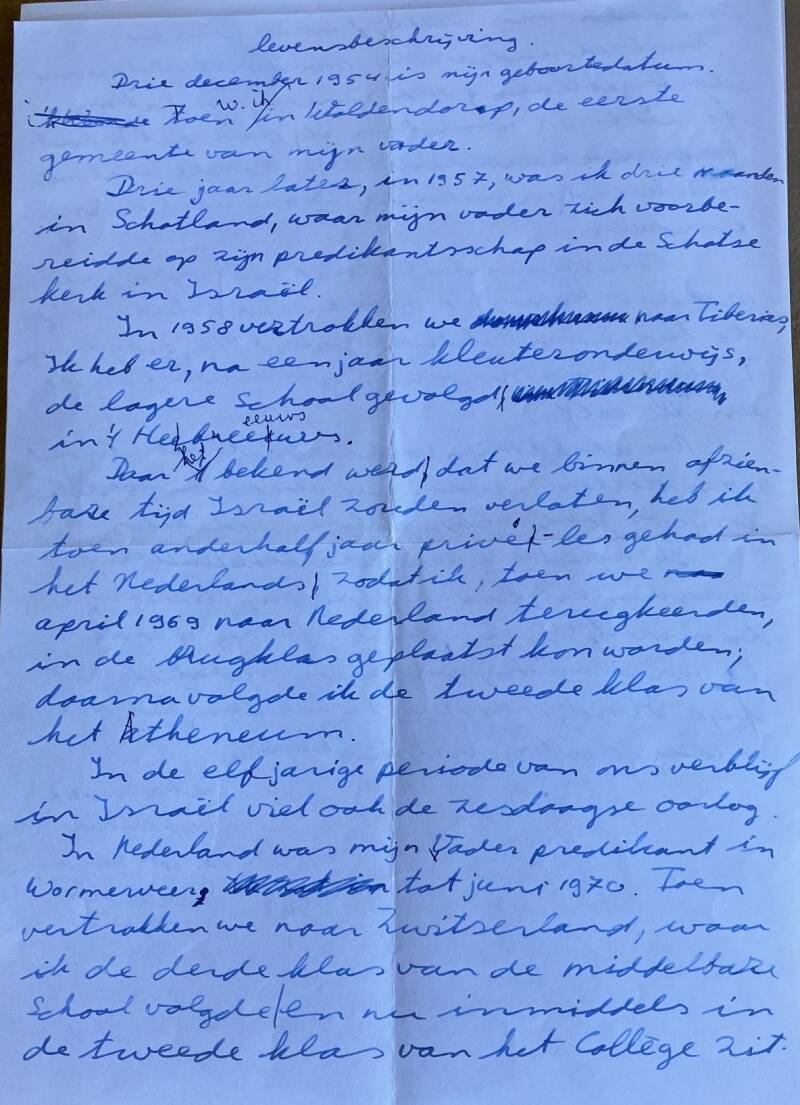 levensbeschrijving.
Drie december 1954 is mijn geboortedatum.
toen w. ik in Woldendorp, de eerste
gemeente van mijn vader.
Drie jaar later, in 1957, was ik drie maanden
in Schotland, waar mijn vader zich voorbe-
reidde op zijn predikantsschap in de Schotse
kerk in Israël.
In 1958 vertrokken we naar Tiberias,
Ik heb er, na een jaar kleuteronderwijs,
de lagere school gevolgd,
in 't Hebreeuws.
Daar het bekend werd, dat we binnen afzien-
bare tijd Israël zouden verlaten, heb ik
toen anderhalf jaar privé-les gehad in
het Nederlands, zodat ik, toen we
april 1969 naar Nederland terugkeerden,
in de brugklas geplaatst kon worden;
daarna volgde ik de tweede klas van
het Atheneum.
In de elfjarige periode van ons verblijf
in Israël viel ook de zesdaagse oorlog.
In Nederland was mijn Vader predikant in
Wormerveer, tot juni 1970. Toen
vertrokken we naar Zwitserland, waar
ik de derde klas van de middelbare
School volgde en nu inmiddels in
de tweede klas van het Collège zit.